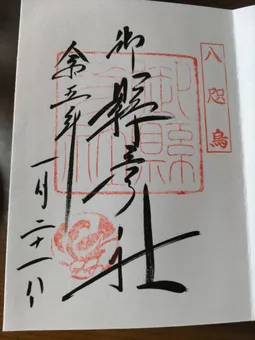 八咫烏
御縣彦社
令五年
一月二十一日